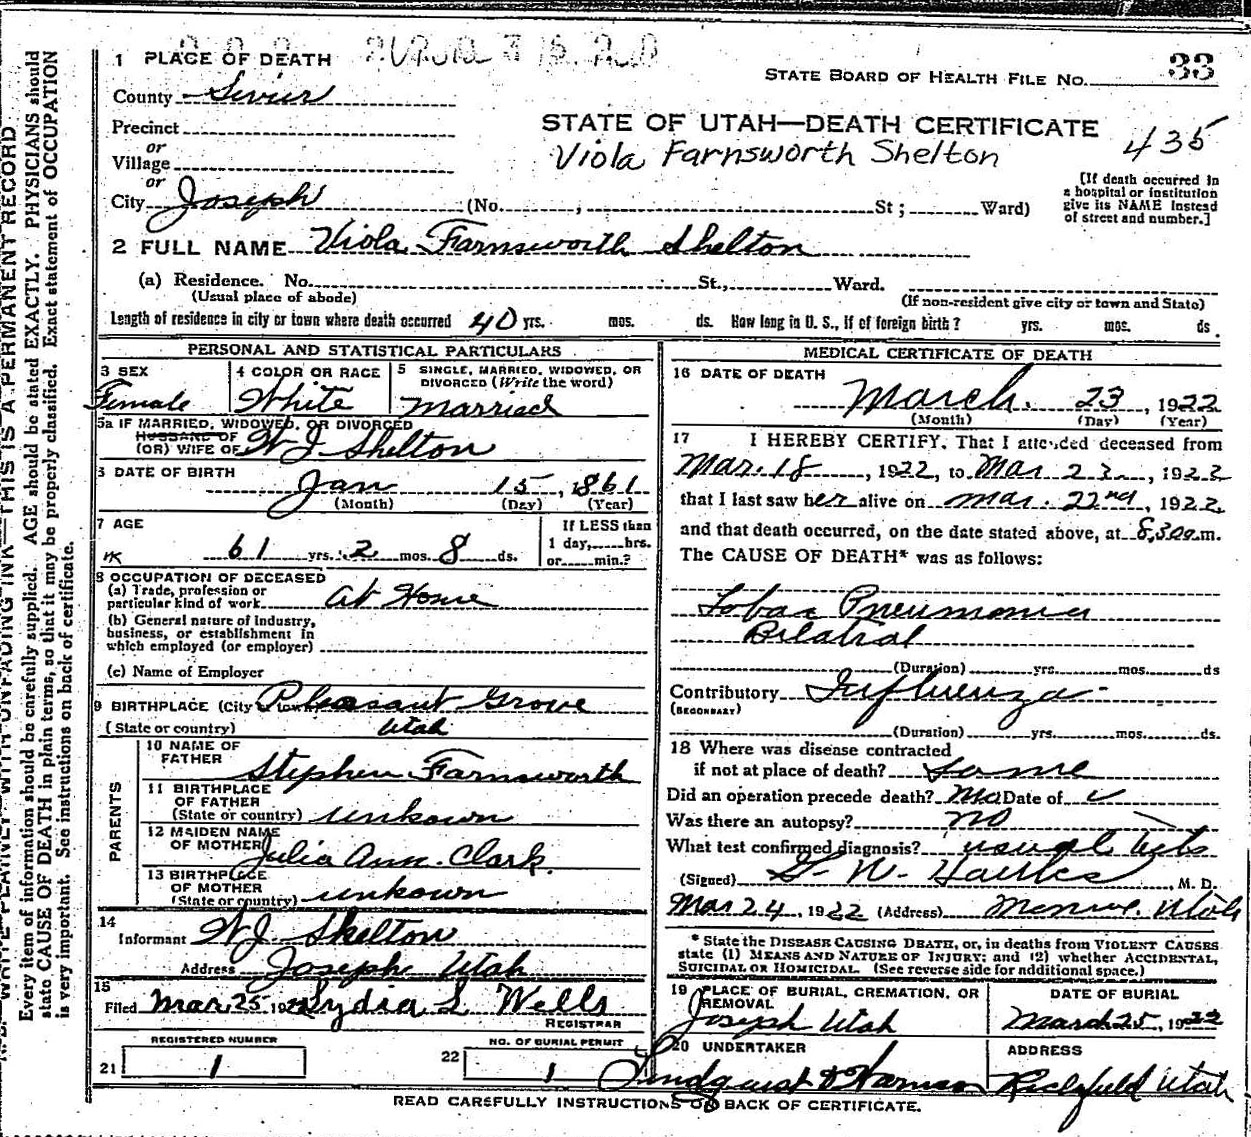 33
1 PLACE OF DEATH
STATE BOARD OF HEALTH FILE NO.
County Sevier
STATE OF UTAH—DEATH CERTIFICATE
Precinct
Viola Farnsworth Shelton
435
or
Village
or
City Joseph (No. , St ; Ward)
[If death occurred in
a hospital or institution
give its NAME instead
of street and number.]
2 FULL NAME Viola Farnsworth Shelton
(a) Residence. No. St., Ward.
(Usual place of abode)
(If non-resident give city or town and State)
Length of residence in city or town where death occurred 40 yrs. mos. ds. How long in U. S., if of foreign birth? yrs. mos. ds.
PERSONAL AND STATISTICAL PARTICULARS
3 SEX
Female
4 COLOR OR RACE
White
5 SINGLE, MARRIED, WIDOWED, OR
DIVORCED (Write the word)
Married
5a IF MARRIED, WIDOWED, OR DIVORCED
HUSBAND OF
(OR) WIFE OF W J Shelton
6 DATE OF BIRTH
Jan 15, 1861
(Month) (Day) (Year)
7 AGE
61 yrs. 2 mos. 8 ds.
If LESS than
1 day, hrs.
or min.?
8 OCCUPATION OF DECEASED
(a) Trade, profession or
particular kind of work At Home
(b) General nature of industry,
business, or establishment in
which employed (or employer)
(c) Name of Employer
9 BIRTHPLACE (City or town) Pleasant Grove
(State or country) Utah
PARENTS
10 NAME OF
FATHER Stephen Farnsworth
11 BIRTHPLACE
OF FATHER
(State or country) unkown
12 MAIDEN NAME
OF MOTHER Julia Ann. Clark.
13 BIRTHPLACE
OF MOTHER
(State or country) unkown
14
Informant W J Shelton
Address Joseph Utah
15
Filed Mar 25 192 Lydia L. Wells
REGISTRAR
REGISTERED NUMBER
21 1
NO. OF BURIAL PERMIT
22 1
MEDICAL CERTIFICATE OF DEATH
16 DATE OF DEATH
March. 23, 1922
(Month) (Day) (Year)
17 I HEREBY CERTIFY, That I attended deceased from
Mar. 18, 1922, to Mar 23, 1922
that I last saw her alive on Mar. 22nd, 1922,
and that death occurred, on the date stated above, at 8:30 a.m.
The CAUSE OF DEATH* was as follows:
Lobar Pneumonia
Bilatral
(Duration) yrs. mos. ds
Contributory Influenza
(SECONDARY)
(Duration) yrs. mos. ds.
18 Where was disease contracted
if not at place of death? Same
Did an operation precede death? no Date of
Was there an autopsy? no
What test confirmed diagnosis? usual
(Signed) G. W. , M. D.
Mar 24, 1922 (Address) Monroe. Utah
* State the DISEASE CAUSING DEATH, or, in deaths from VIOLENT CAUSES
state (1) MEANS AND NATURE OF INJURY; and (2) whether ACCIDENTAL,
SUICIDAL OR HOMICIDAL. (See reverse side for additional space.)
19 PLACE OF BURIAL, CREMATION, OR
REMOVAL
Joseph Utah
DATE OF BURIAL
March 25, 1922
20 UNDERTAKER
Lindquist &
ADDRESS
Richfield Utah
READ CAREFULLY INSTRUCTIONS ON BACK OF CERTIFICATE.
THIS IS A PERMANENT RECORD
Every item of information should be carefully supplied. AGE should be stated EXACTLY. PHYSICIANS should
state CAUSE OF DEATH in plain terms, so that it may be properly classified. Exact statement of OCCUPATION
is very important. See instructions on back of certificate.